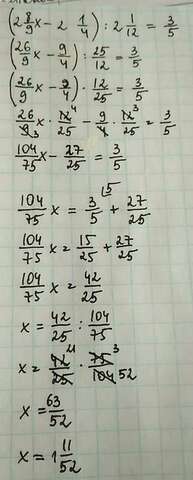 (2 8/9 x - 2 1/4) : 2 1/12 = 3/5
(26/9 x - 9/4) : 25/12 = 3/5
(26/9 x - 9/4) · 12/25 = 3/5
26/9 3 x · 12 4/25 - 9/4 · 12 3/25 = 3/5
104/75 x - 27/25 = 3/5
104/75 x = 3/5 15 + 27/25
104/75 x = 15/25 + 27/25
104/75 x = 42/25
x = 42/25 : 104/75
x = 42 21/25 · 75 3/104 52
x = 63/52
x = 1 11/52